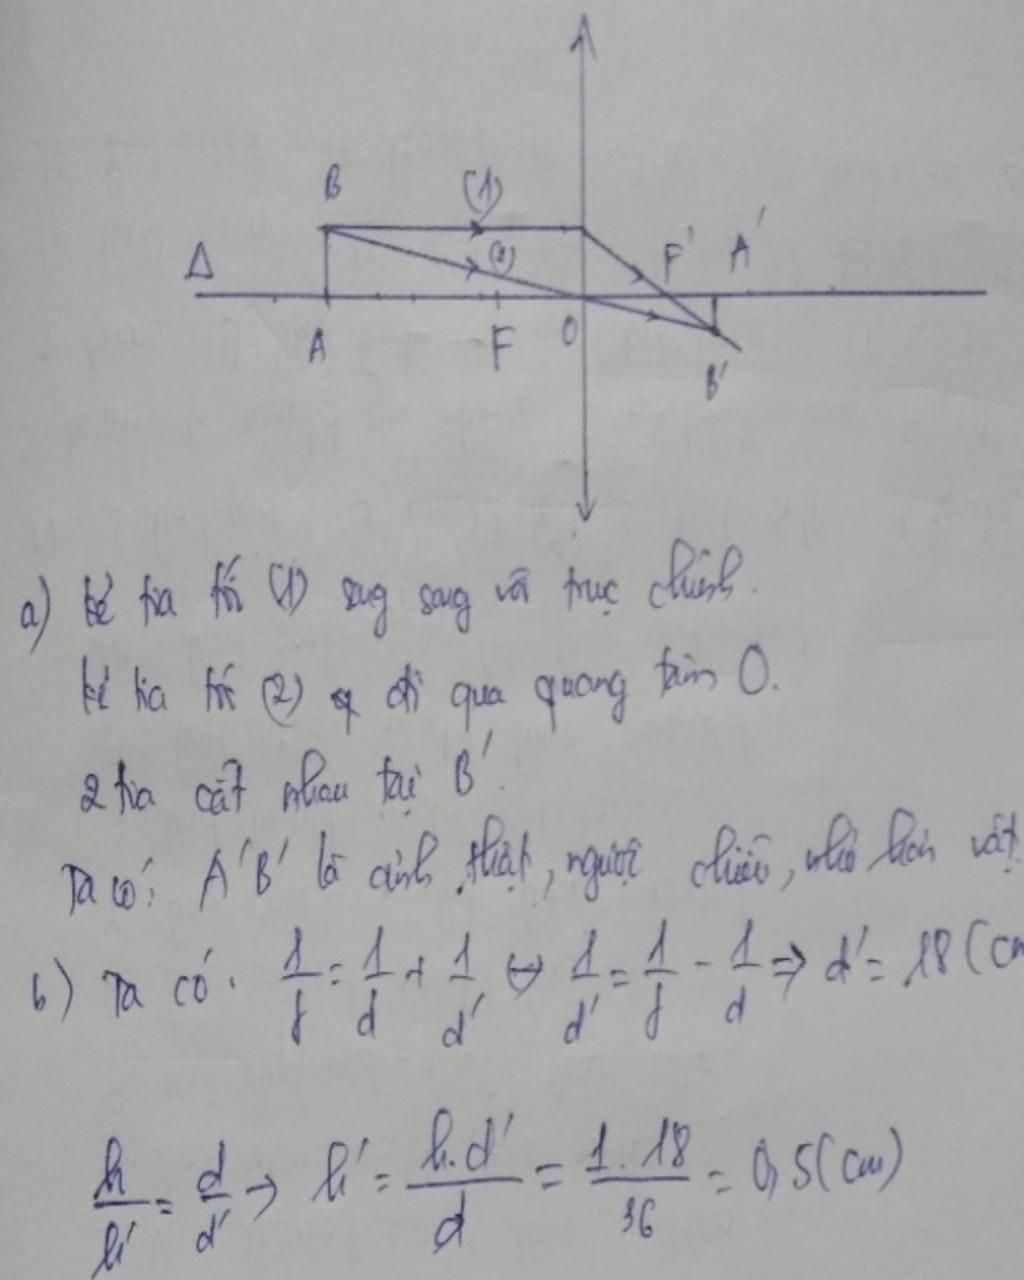 B (1)
Δ (2) F' A'
A F O B'
a) kẻ tia tới (1) song song với trục chính.
kẻ tia tới (2) đi qua quang tâm O.
2 tia cắt nhau tại B'.
Ta có: A'B' là ảnh thật, ngược chiều, nhỏ hơn vật
b) Ta có. 1/f = 1/d + 1/d' ↔ 1/d' = 1/f - 1/d ⇒ d' = 18 (cm
h/h' = d/d' → h' = h.d'/d = 1.18/36 = 0,5 (cm)